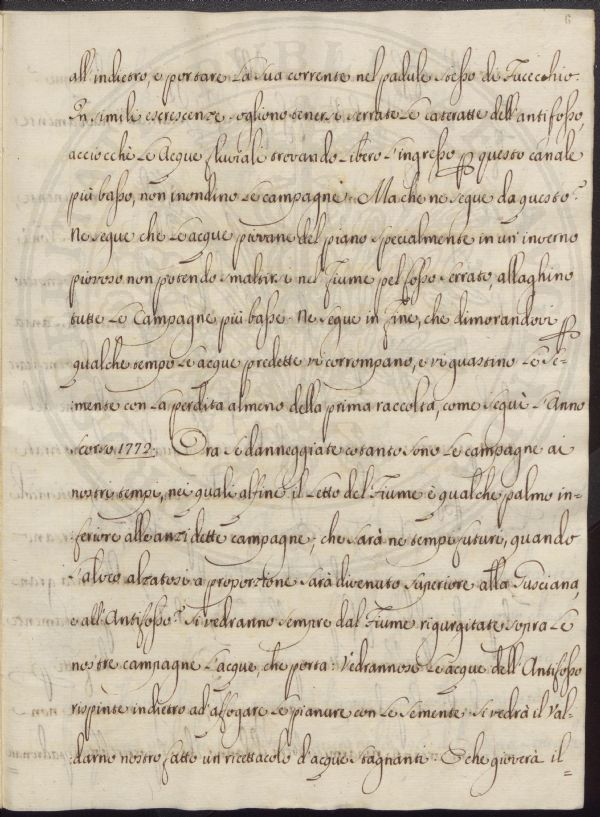 6
all'indietro, e portare la sua corrente nel padule stesso di Fucecchio.
In simili escrescenze sogliono tenersi serrate le cateratte dell'antifosso,
acciocchè le Acque fluviali trovando libero l'ingresso p questo canale
più basso, non inondino le campagne. Ma che ne segue da questo?
Ne segue che le acque piovane del piano specialmente in un inverno
piovoso non potendo smaltirsi nel Fiume pel fosso serrato allaghino
tutte le Campagne più basse. Ne segue in fine, che dimorandovi p
qualche tempo le acque predette vi corrompano, e vi guastino le Se-
mente con la perdita almeno della prima raccolta, come seguì l'Anno
scorso 1772. Ora se danneggiate cotanto sono le campagne ai
nostri tempi, nei quali alfine il Letto del Fiume è qualche palmo in=
feriore alle anzidette campagne, che sarà ne tempi futuri, quando
l'alveo alzatosi a proporzione sarà divenuto superiore alla Gusciana,
e all'Antifosso? Si vedranno sempre dal Fiume rigurgitate sopra le
nostre campagne l'acque, che porta: Vedrannosi le acque dell'Antifosso
rispinte indietro ad affogare le pianure con le Semente: Si vedrà il Val-
darno nostro fatto un ricettacolo d'acque stagnanti. E che gioverà il=